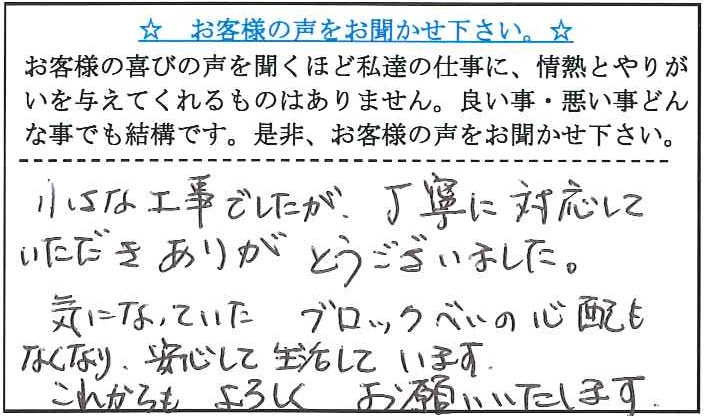 ☆ お客様の声をお聞かせ下さい。☆
お客様の喜びの声を聞くほど私達の仕事に、情熱とやりが
いを与えてくれるものはありません。良い事・悪い事どん
な事でも結構です。是非、お客様の声をお聞かせ下さい。
小さな工事でしたが、丁寧に対応して
いただきありがとうございました。
気になっていた ブロックべいの心配も
なくなり、安心して生活しています。
これからも よろしく お願いいたします。